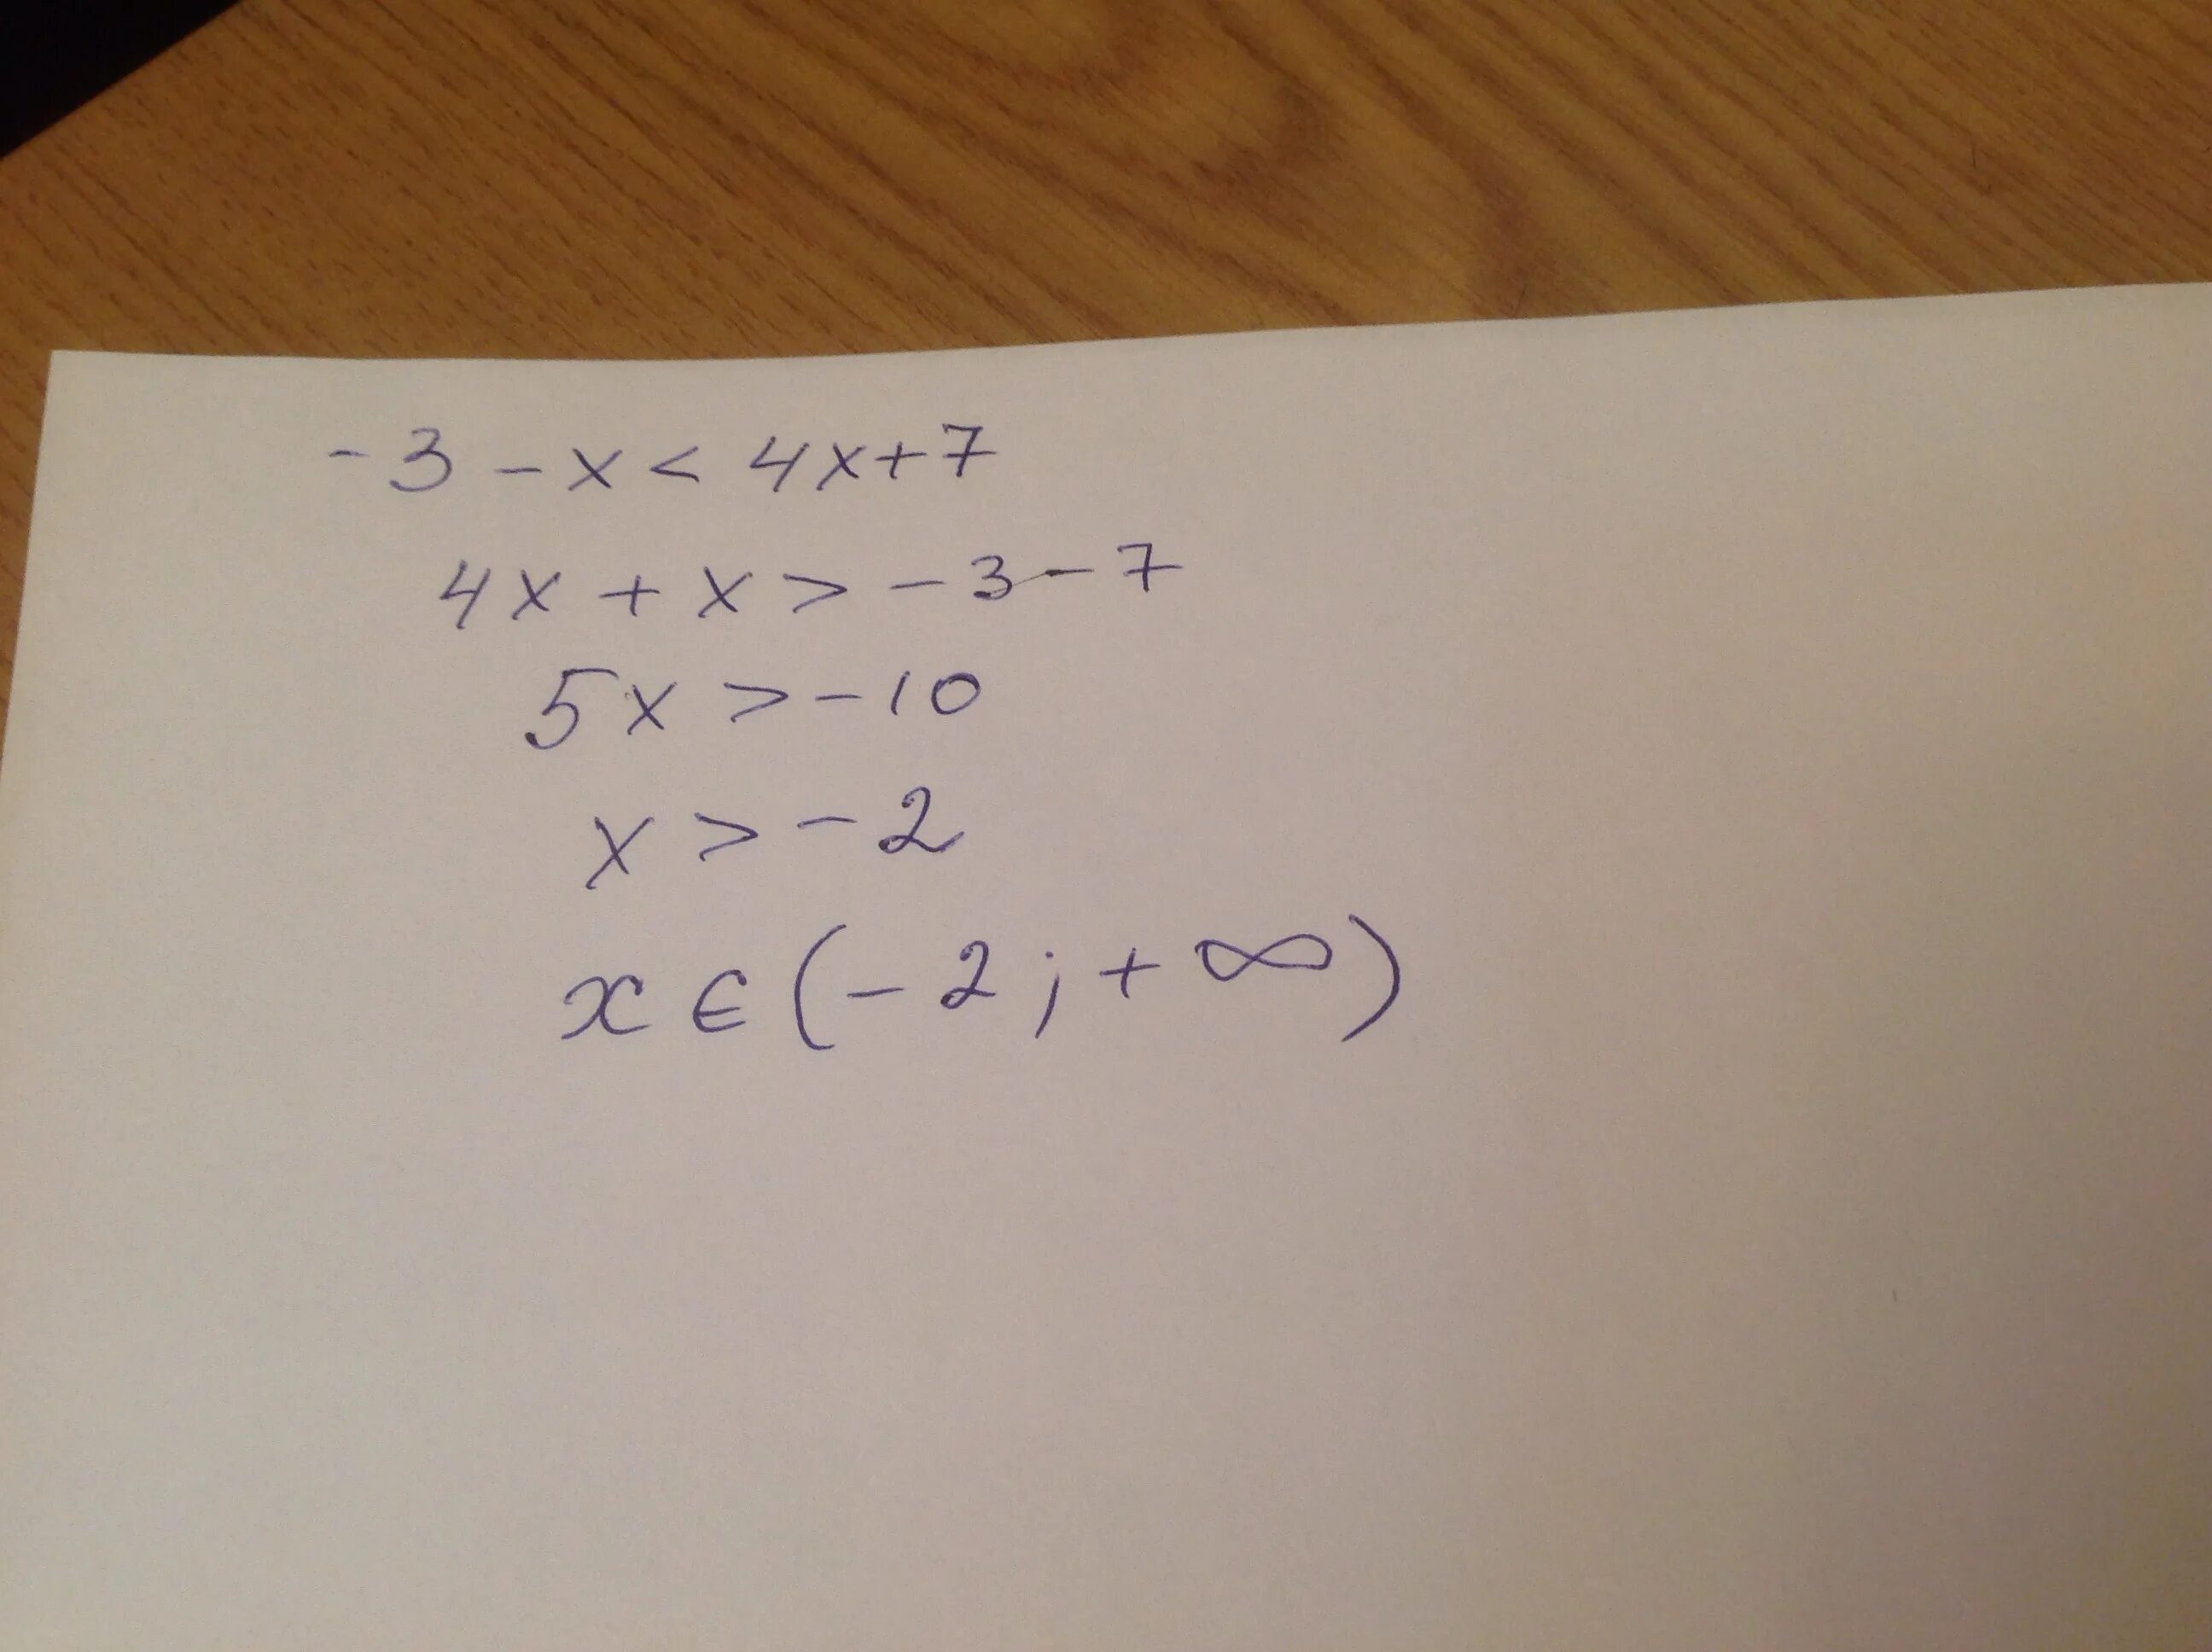 -3 - x < 4x+7
4x + x > -3 - 7
5x > -10
x > -2
x ∈ (-2; +∞)